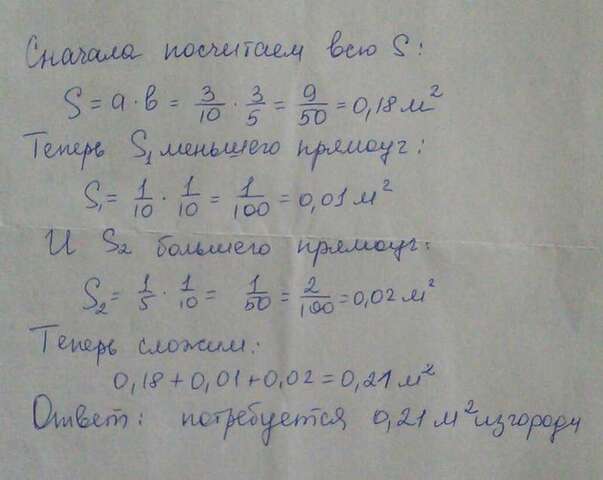 Сначала посчитаем всю S:
S = a · b = 3/10 · 3/5 = 9/50 = 0,18 м²
Теперь S₁ меньшего прямоуг:
S₁ = 1/10 · 1/10 = 1/100 = 0,01 м²
И S₂ большего прямоуг:
S₂ = 1/5 · 1/10 = 1/50 = 2/100 = 0,02 м²
Теперь сложим:
0,18 + 0,01 + 0,02 = 0,21 м²
Ответ: потребуется 0,21 м² изгороди